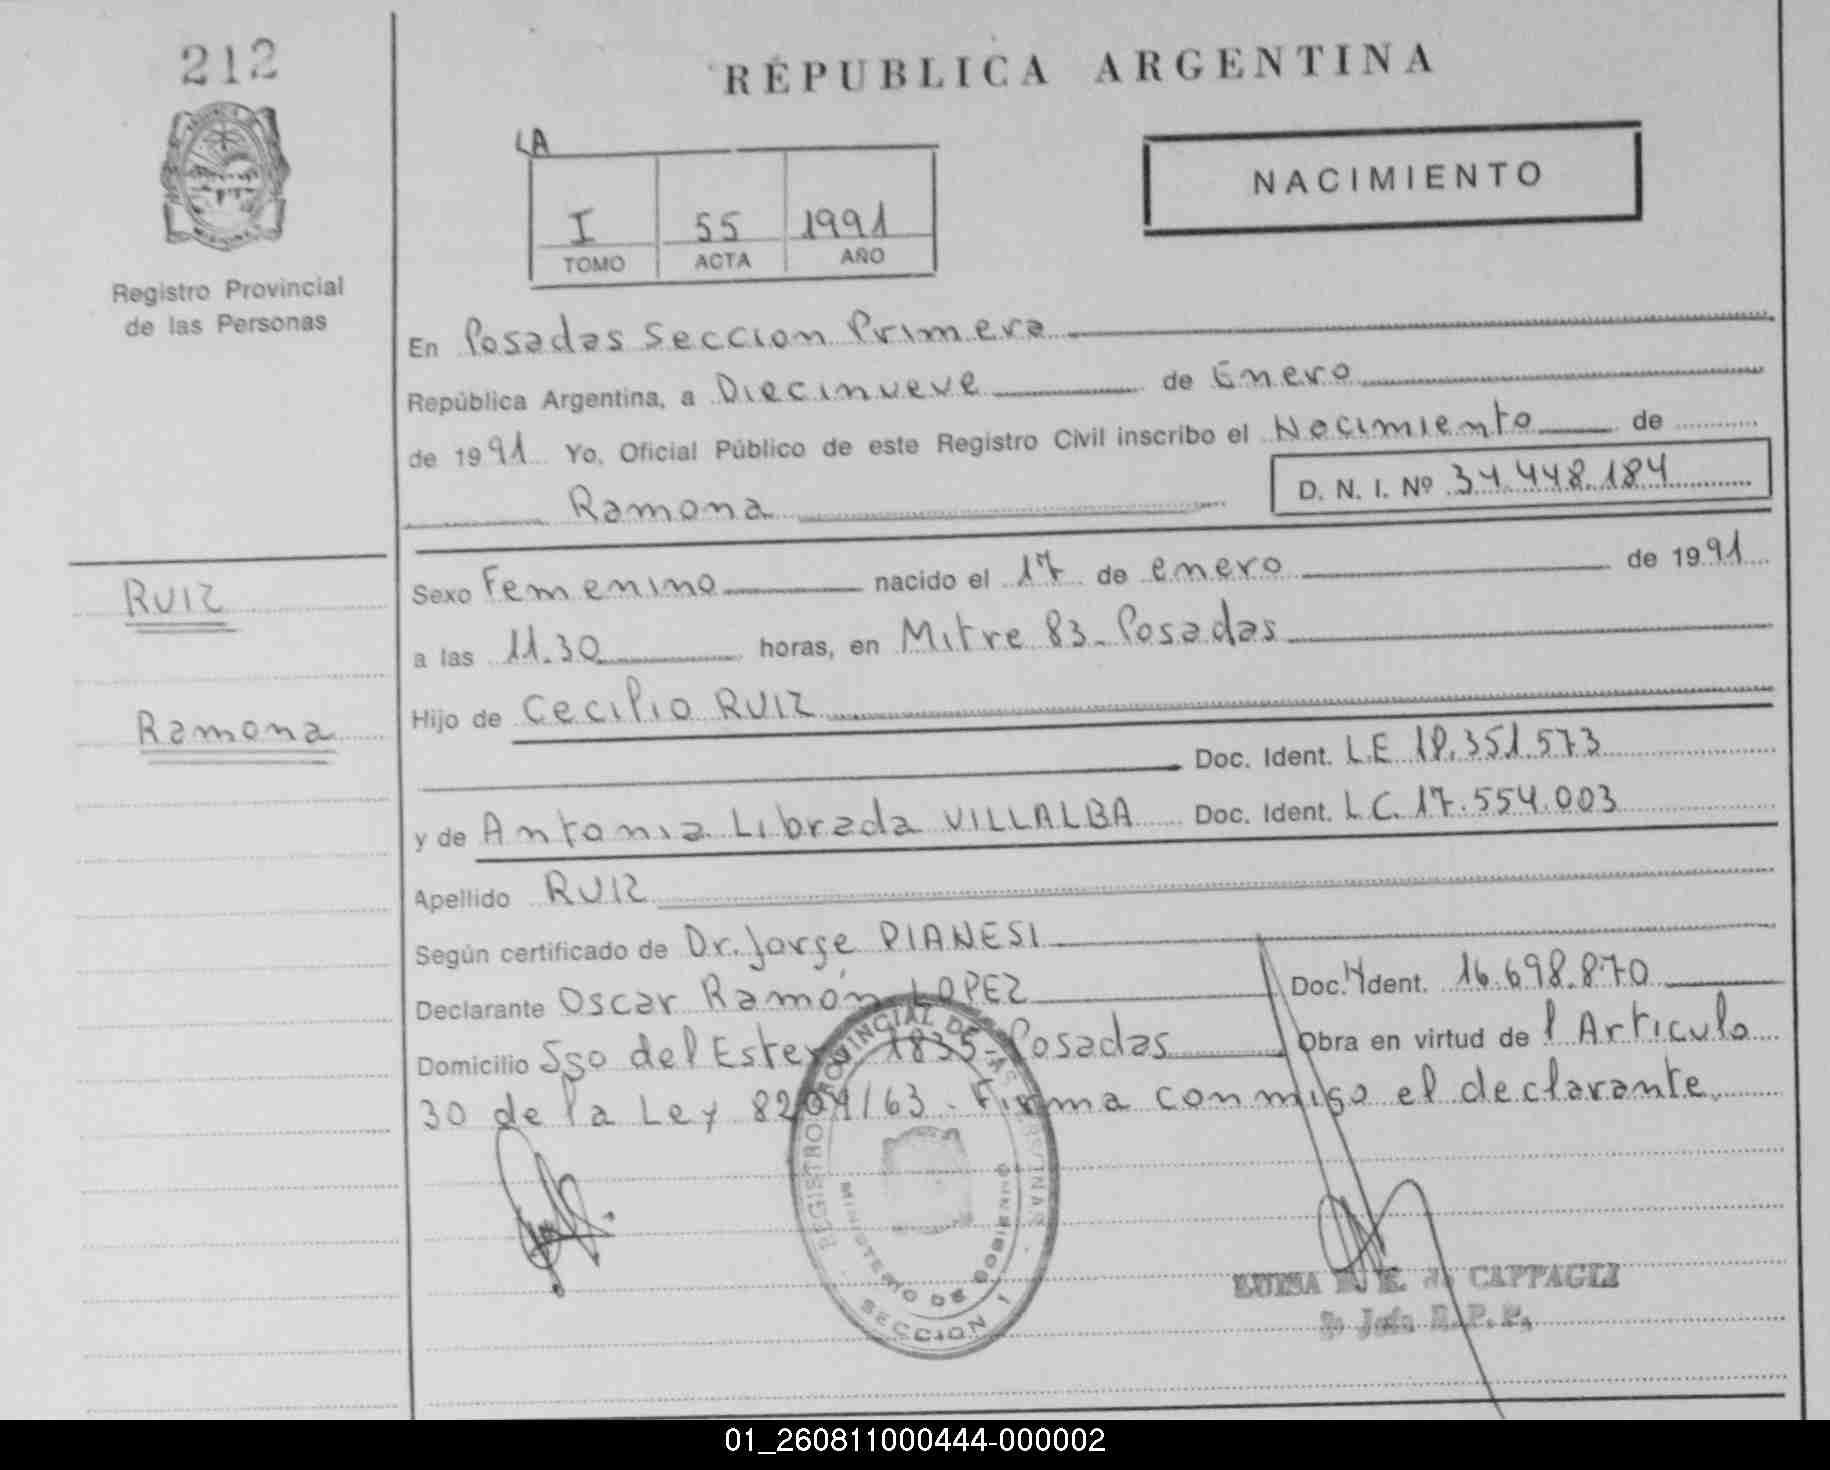 212
REPUBLICA ARGENTINA
LA
NACIMIENTO
I 55 1991
TOMO ACTA AÑO
Registro Provincial
de las Personas
En Posadas Seccion Primera
República Argentina, a Diecinueve de Enero
de 1991 Yo, Oficial Público de este Registro Civil inscribo el Nacimiento de
Ramona D. N. I. Nº 34.448.184
RUIZ
Ramona
Sexo Femenino nacido el 17 de enero de 1991
a las 11.30 horas, en Mitre 83 - Posadas
Hijo de Cecilio RUIZ
Doc. Ident. L.E 18.351.573
y de Antonia Librada VILLALBA Doc. Ident. L C. 17.554.003
Apellido RUIZ
Según certificado de Dr. Jorge PIANESI
Declarante Oscar Ramón LOPEZ Doc. Ident. 16.698.870
Domicilio Sgo del Estero 1835 - Posadas Obra en virtud del Articulo
30 de la Ley 8204/63 - Firma conmigo el declarante.
REGISTRO PROVINCIAL DE LAS PERSONAS
MINISTERIO DE GOBIERNO
SECCION 1
de CAPPAGLI
01_260811000444-000002